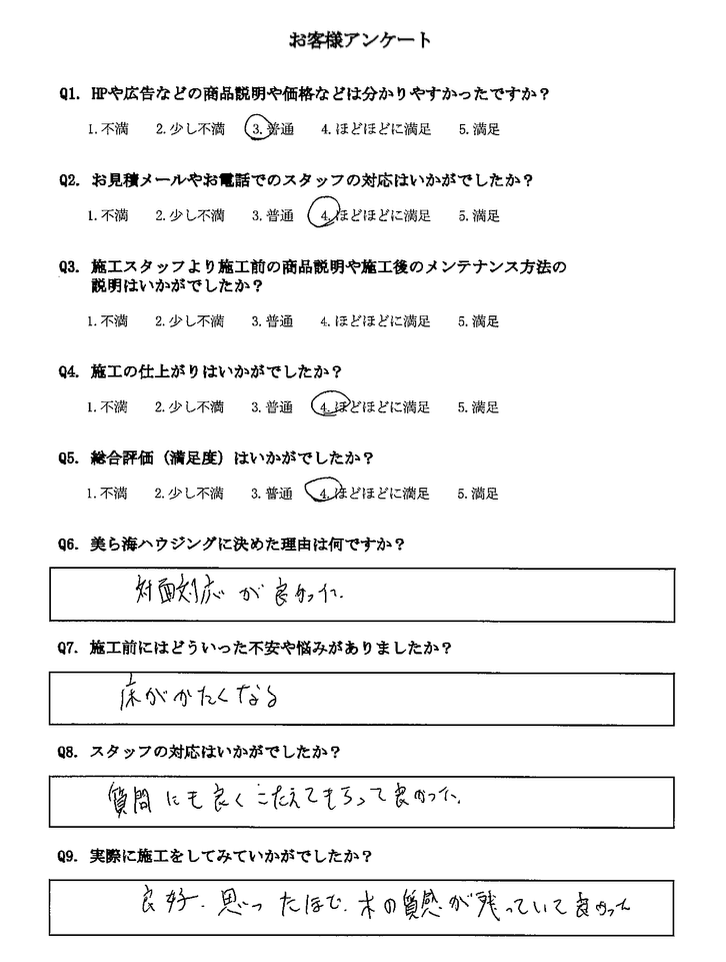 お客様アンケート
Q1. HPや広告などの商品説明や価格などは分かりやすかったですか？
1.不満 2.少し不満 3.普通 4.ほどほどに満足 5.満足
Q2. お見積メールやお電話でのスタッフの対応はいかがでしたか？
1.不満 2.少し不満 3.普通 4.ほどほどに満足 5.満足
Q3. 施工スタッフより施工前の商品説明や施工後のメンテナンス方法の
説明はいかがでしたか？
1.不満 2.少し不満 3.普通 4.ほどほどに満足 5.満足
Q4. 施工の仕上がりはいかがでしたか？
1.不満 2.少し不満 3.普通 4.ほどほどに満足 5.満足
Q5. 総合評価（満足度）はいかがでしたか？
1.不満 2.少し不満 3.普通 4.ほどほどに満足 5.満足
Q6. 美ら海ハウジングに決めた理由は何ですか？
対面対応が良かった.
Q7. 施工前にはどういった不安や悩みがありましたか？
床がかたくなる
Q8. スタッフの対応はいかがでしたか？
質問にも良くこたえてもらって良かった.
Q9. 実際に施工をしてみていかがでしたか？
良好. 思ったほで. 木の質感が残っていて良かった